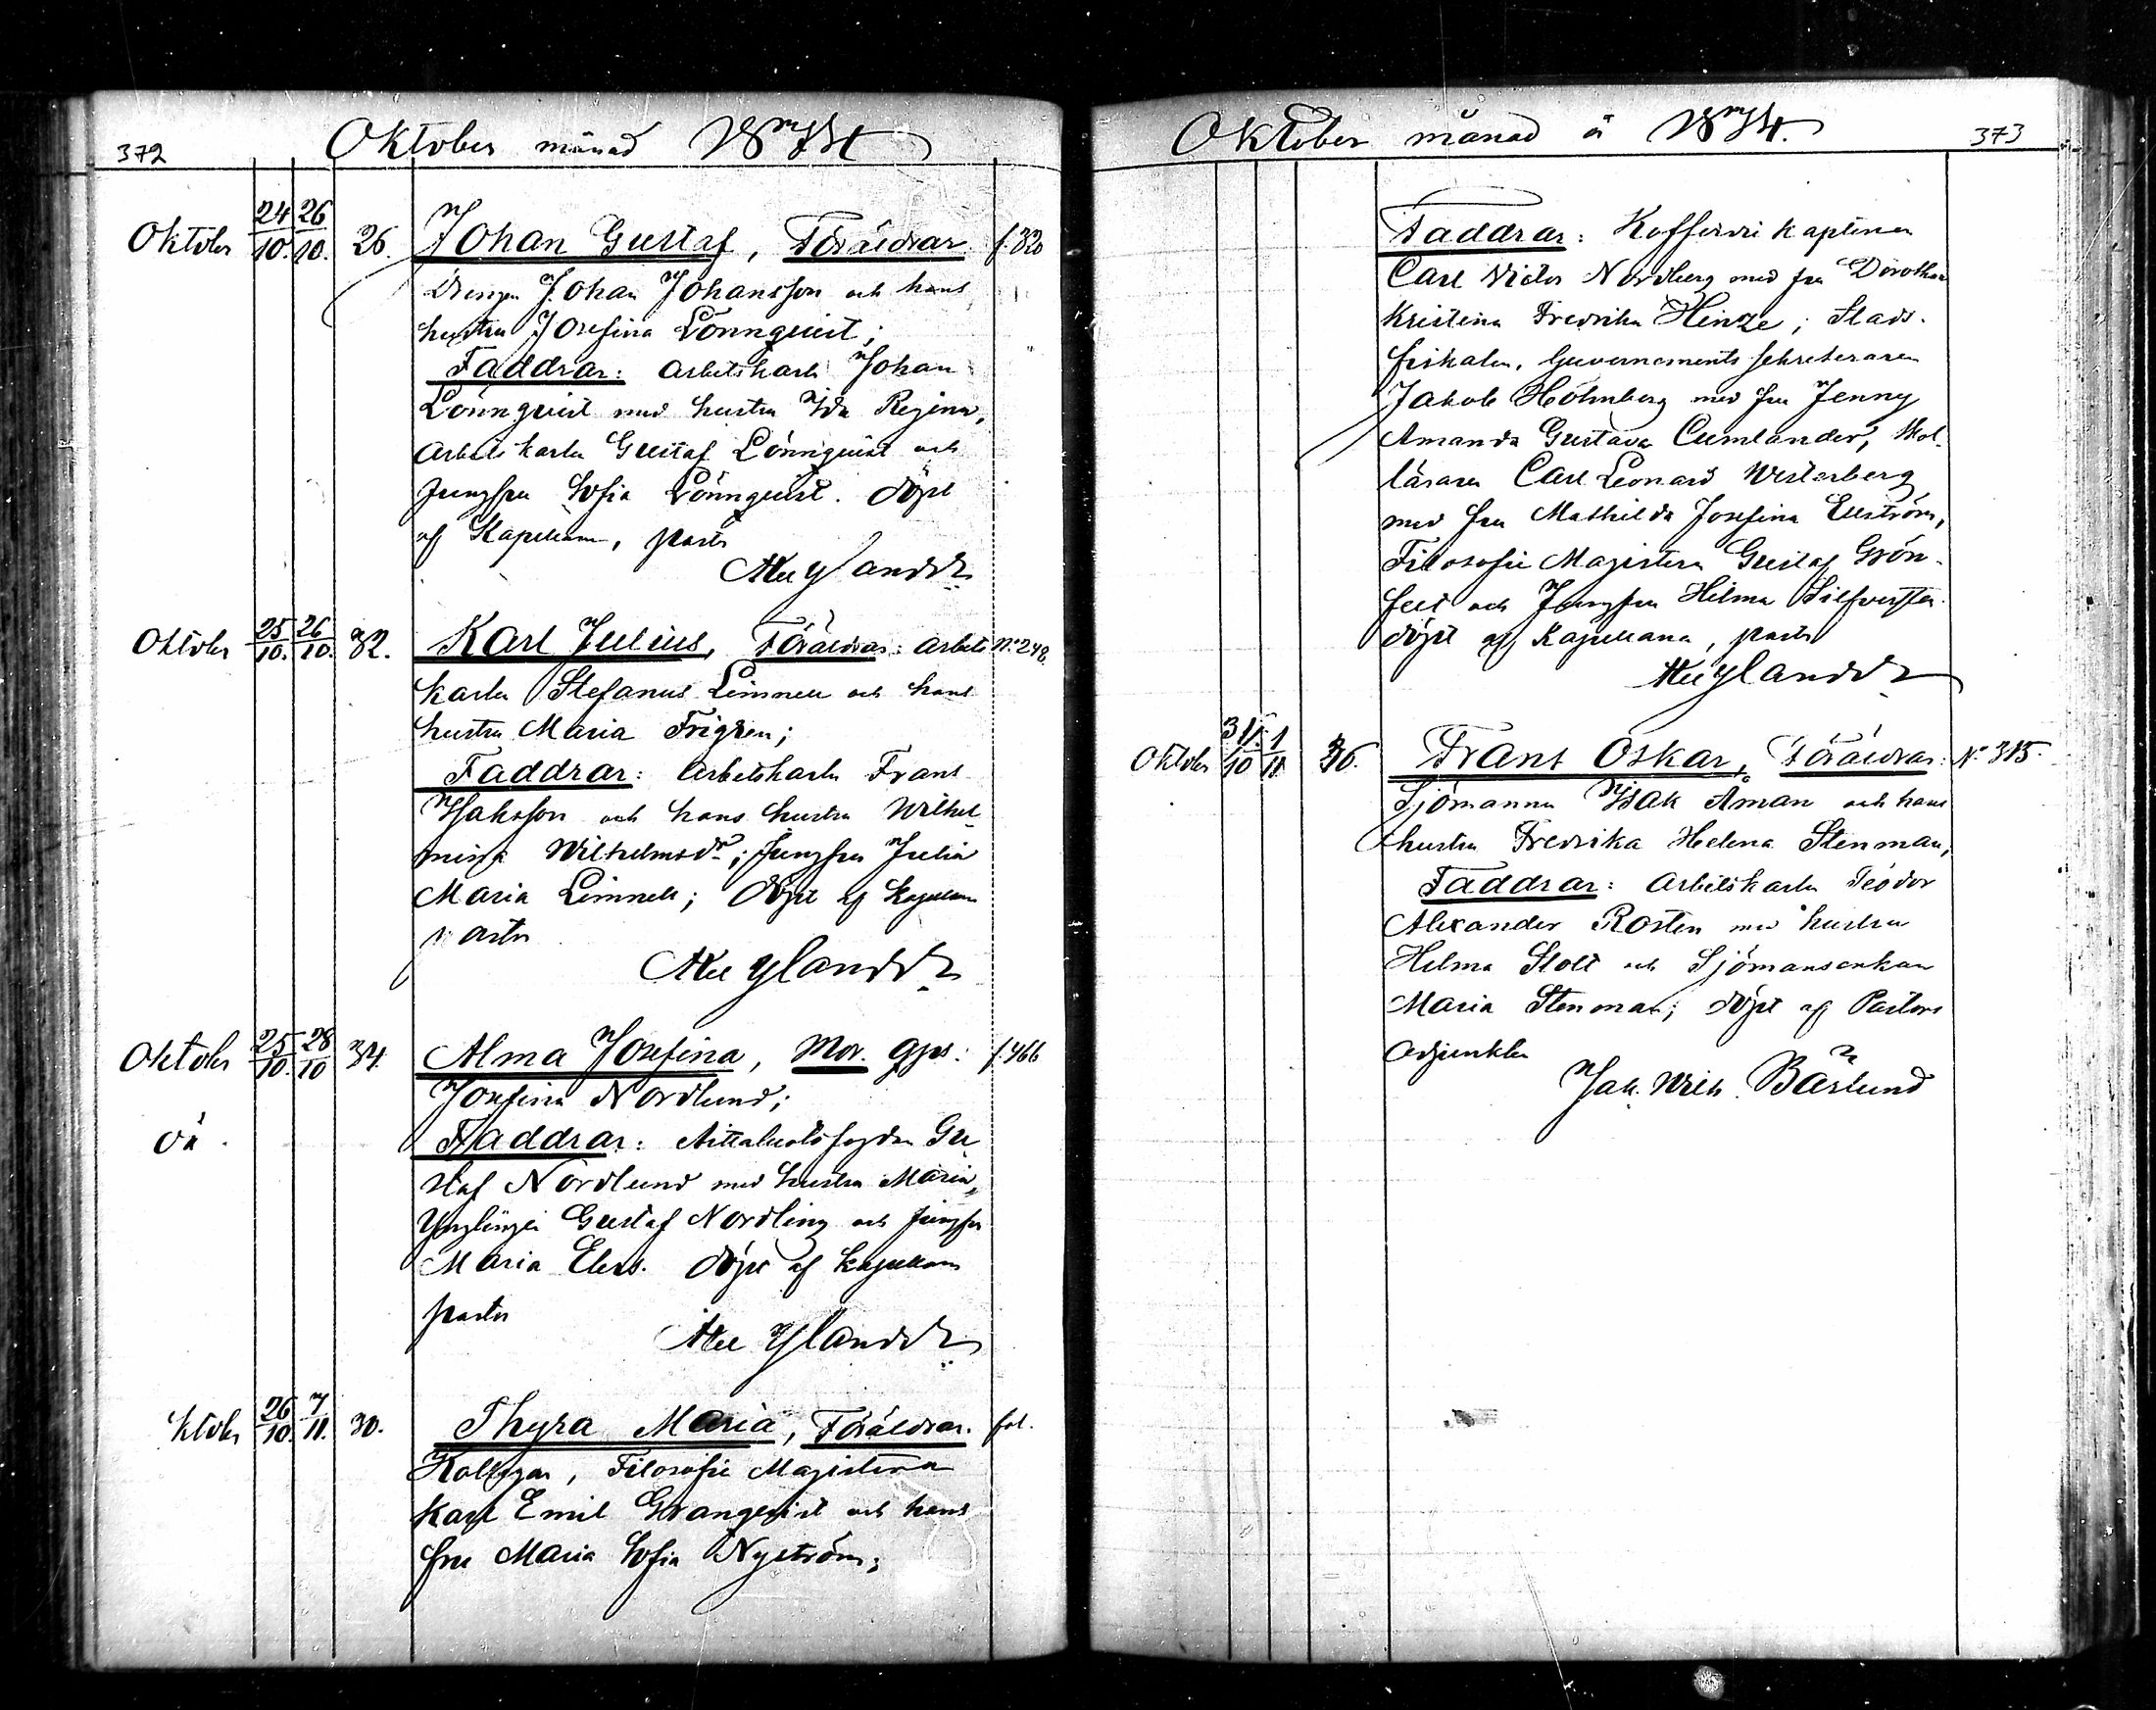 372
Oktober månad 1874
Oktober 24/10. 26/10. 26. Johan Gustaf, Föräldrar. f. 320
Drengen Johan Johansson och hans
hustru Josefina Lönnquist;
Faddrar: Arbetskarln Johan
Lönnquist med hustru Ida Regina,
Arbetskarln Gustaf Lönnquist och
Jungfru Sofia Lönnquist. Döpt
af Kapellanen, pastor
Nylander
Oktober 25/10. 26/10. 32. Karl Julius, Föräldrar: Arbets No. 248.
karln Stefanus Limnell och hans
hustru Maria Frigren;
Faddrar: Arbetskarln Frans
Isaksson och hans hustru Wilhel-
mina Wilhelmsdr; Jungfru Julia
Maria Limnell; Döpt af Kapellan
pastor
Nylander
Oktober 25/10. 28/10 34. Alma Josefina, Mor. gps. f. 466
Josefina Nordlund;
oä.
Faddrar: Gu-
staf Nordlund med hustru Maria,
Ynglingen Gustaf Nordling och jungfru
Maria Elers. Döpt af Kapellan
pastor
Nylander
ktober 26/10. 7/11. 30. Thyra Maria, Föräldrar. fol.
Kollegan, Filosofie Magistern
Karl Emil Granqvist och hans
fru Maria Sofia Nyström;
Oktober månad å 1874.
373
Faddrar: Kofferdi kaptenen
Carl Victor Nordberg med fru Dorothea
Kristina Fredrika Heinze; Stads-
fiskalen, Guvernements sekreteraren
Jakob Holmberg med fru Jenny
Amanda Gustava Cumlander, Skol-
läraren Carl Leonard Westerberg
med fru Mathilda Josefina Ellström,
Filosofie Magistern Gustaf Grön-
felt och Jungfru Hilma
döpt af Kapellanen, pastor
Nylander
Oktober 31/10 1/11 36. Frans Oskar, Föräldrar: No. 315.
Sjömannen Isak Åman och hans
hustru Fredrika Helena Stenman,
Faddrar: Arbetskarln Teodor
Alexander Rosten med hustru
Hilma Stolt och Sjömansenkan
Maria Stenman; döpt af Pastors
adjunkten
Jak. Wilh. Båslund